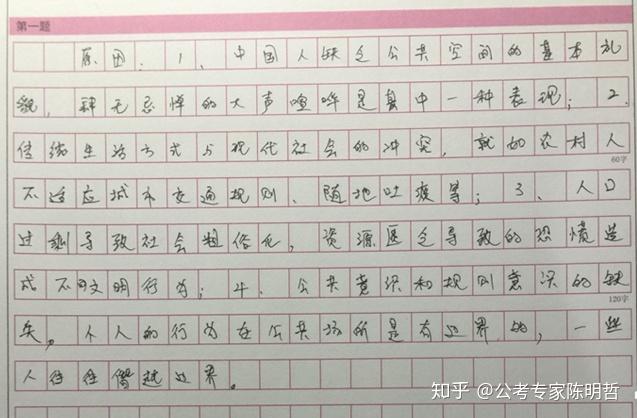 第一题
原因：1、中国人缺乏公共空间的基本礼
貌，肆无忌惮的大声喧哗是其中一种表现；2、
传统生活方式与现代社会的冲突，就如农村人
60字
不适应城市交通规则、随地吐痰等；3、人口
过剩导致社会粗俗化，资源匮乏导致的恐慌造
成不文明行为；4、公共意识和规则意识的缺
120字
失，个人的行为在公共场所是有边界的，一些
人往往僭越边界。
知乎 @公考专家陈明哲